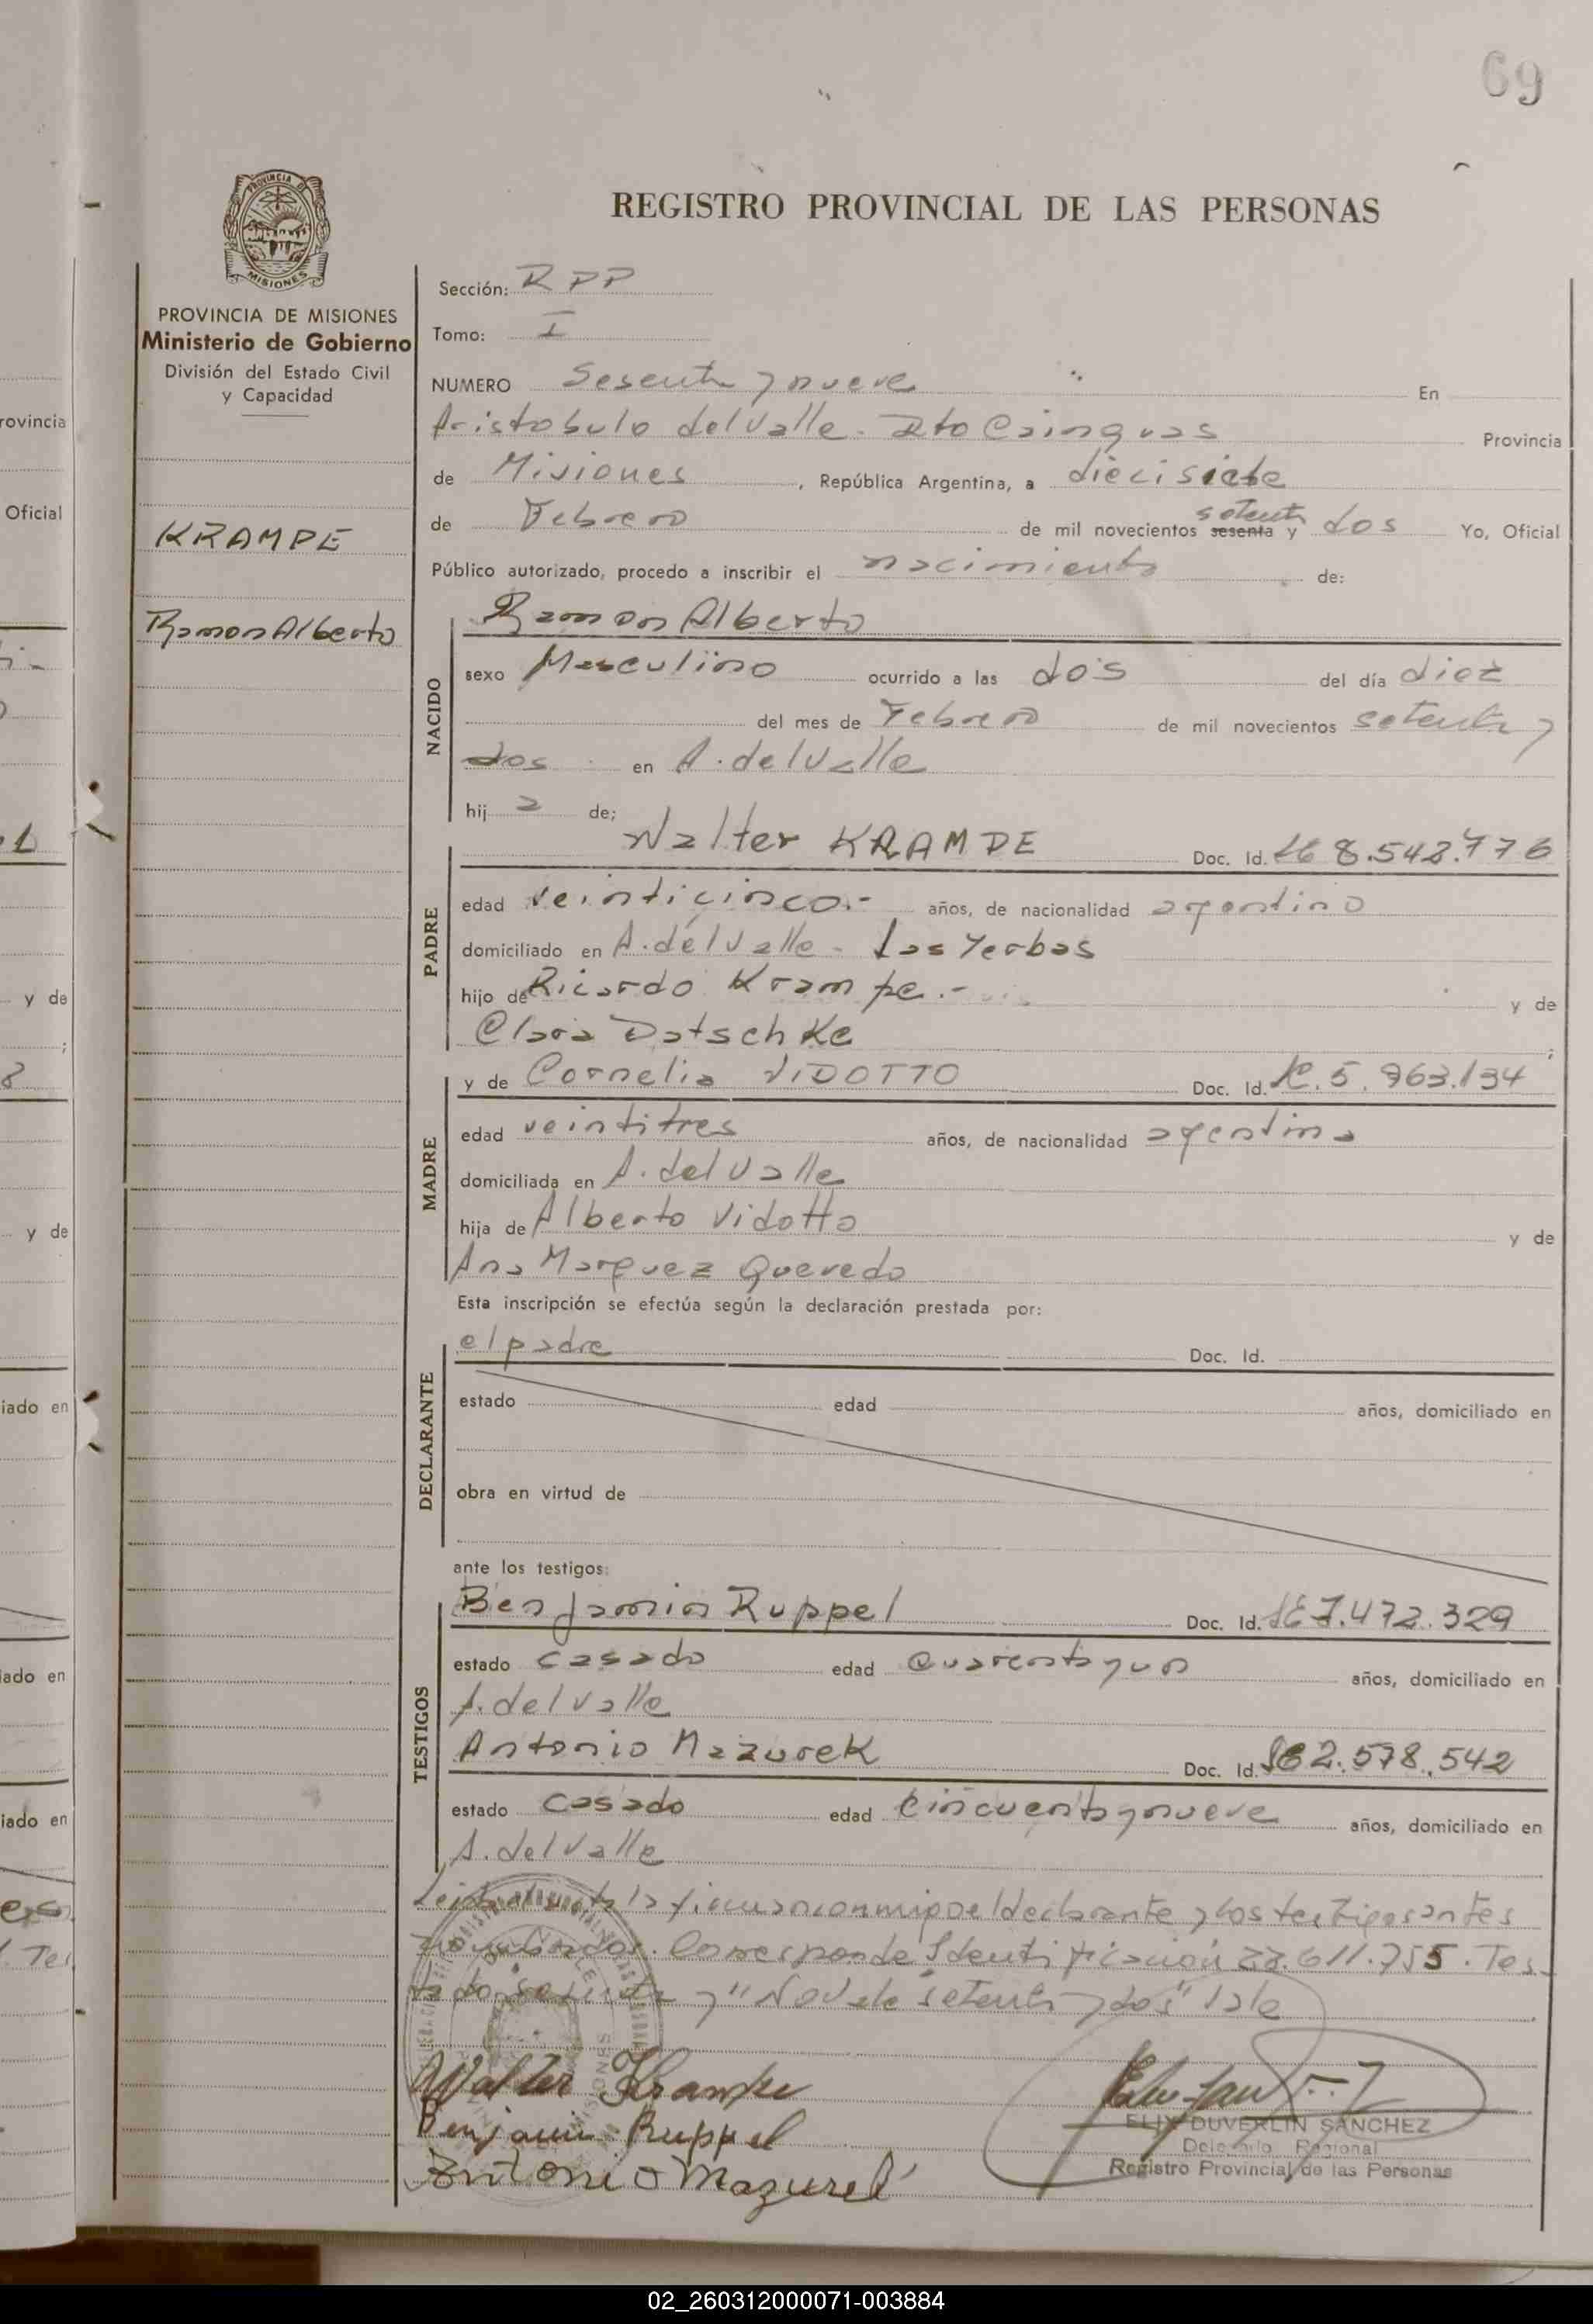 69
REGISTRO PROVINCIAL DE LAS PERSONAS
PROVINCIA DE MISIONES
Ministerio de Gobierno
División del Estado Civil
y Capacidad
KRAMPE
Ramon Alberto
Sección: RPP
Tomo: I
NUMERO Sesenta y nueve En
Aristobulo del Valle. Dto Cainguas Provincia
de Misiones, República Argentina, a diecisiete
de Febrero de mil novecientos sesenta setenta y dos Yo, Oficial
Público autorizado, procedo a inscribir el nacimiento de:
NACIDO
Ramon Alberto
sexo Masculino ocurrido a las dos del día diez
del mes de Febrero de mil novecientos setenta y
dos en A. del Valle
hij o de;
PADRE
Walter KRAMPE Doc. Id. LE 8.542.776
edad veinticinco.- años, de nacionalidad argentino
domiciliado en A. del Valle - Las Yerbas
hijo de Ricardo Krampe.- y de
Clara Datschke ;
MADRE
y de Cornelia VIDOTTO Doc. Id. LC. 5.963.134
edad veintitres años, de nacionalidad argentina
domiciliada en A. del Valle
hija de Alberto Vidotto y de
Ana Marquez Quevedo
Esta inscripción se efectúa según la declaración prestada por:
DECLARANTE
el padre Doc. Id.
estado edad años, domiciliado en
obra en virtud de
ante los testigos:
TESTIGOS
Benjamin Ruppel Doc. Id. LE 7.472.329
estado casado edad Cuarenta y un años, domiciliado en
A. del Valle
Antonio Mazurek Doc. Id. LE 2.578.542
estado casado edad Cincuenta y nueve años, domiciliado en
A. del Valle
Leida el acta la firman conmigo el declarante y los testigos antes
nombrados. Corresponde Identificacion 22.611.755. Tes-
tado sesenta y "Novele setenta y dos" Vale
Walter Krampe
Benjamin Ruppel
Antonio Mazurek
ELIX DUVERLIN SANCHEZ
Delegado Regional
Registro Provincial de las Personas
02_260312000071-003884